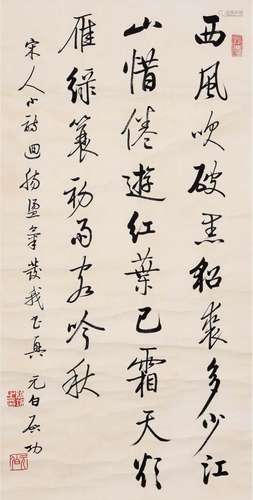 西風吹破黑貂裘多少江
山惜倦遊紅葉已霜天欲
雁綠蓑初雨客吟秋
宋人小詩迴腸盪氣發我興 元白启功